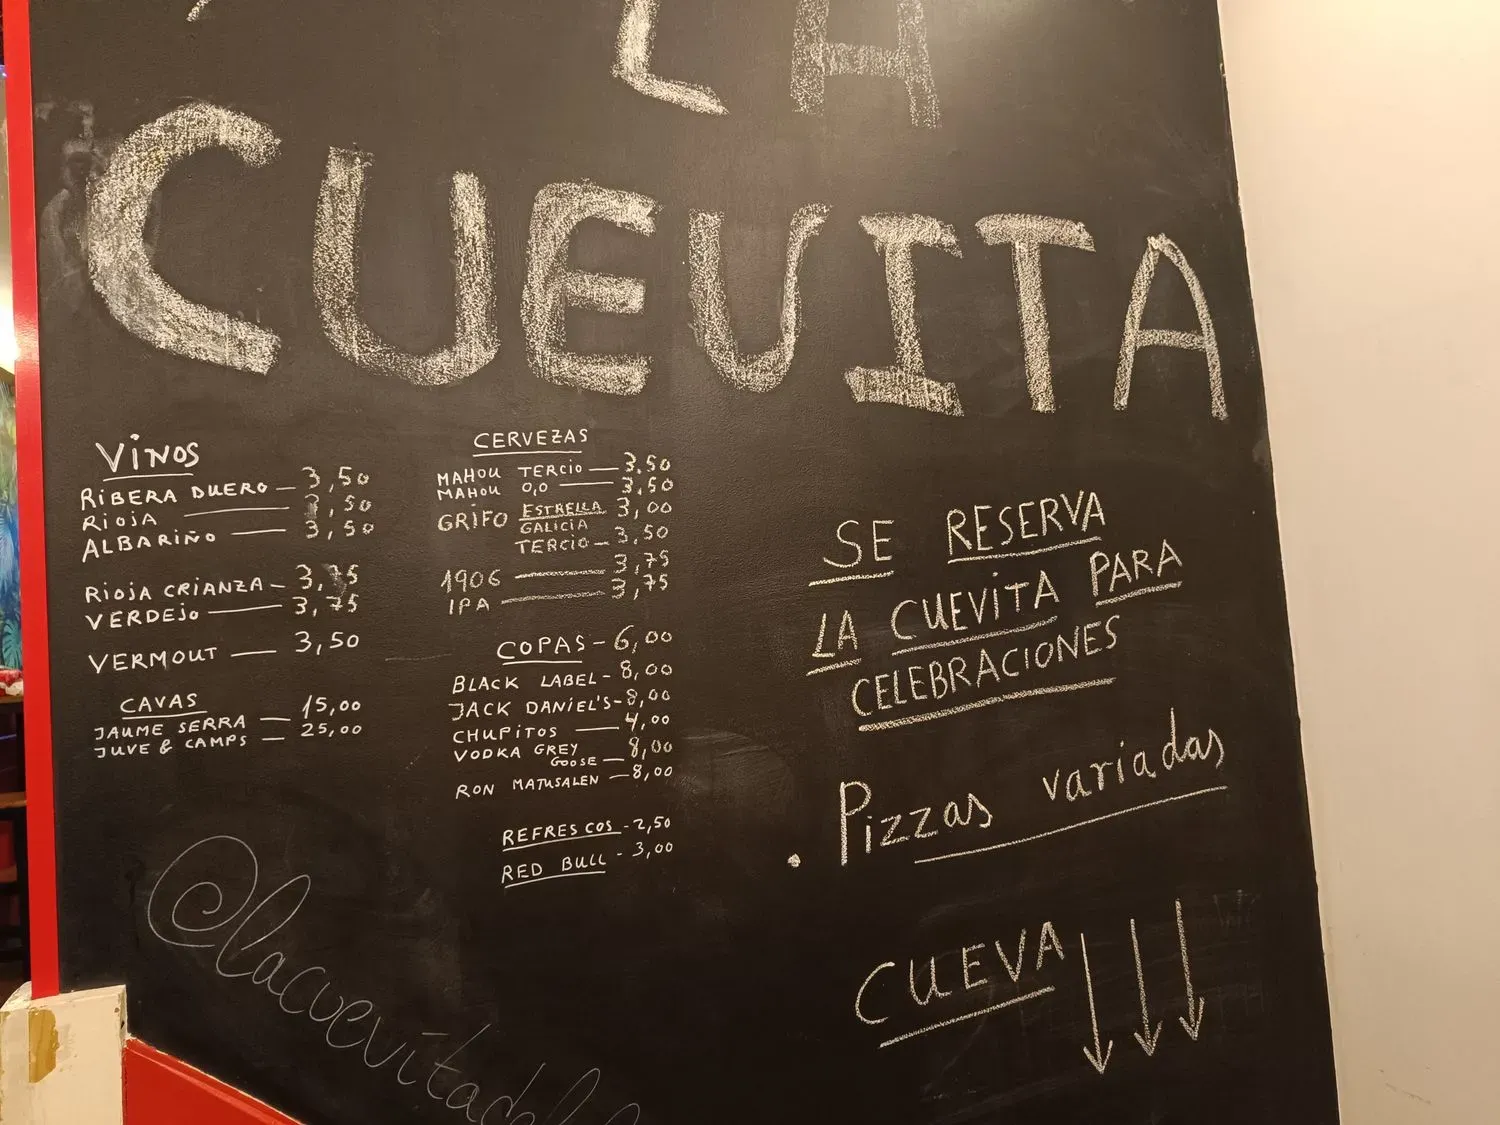 LA
CUEVITA
VINOS
RIBERA DUERO — 3,50
RIOJA — 3,50
ALBARIÑO — 3,50
RIOJA CRIANZA - 3,75
VERDEJO — 3,75
VERMOUT — 3,50
CAVAS
JAUME SERRA — 15,00
JUVE & CAMPS — 25,00
CERVEZAS
MAHOU TERCIO — 3.50
MAHOU 0,0 — 3,50
GRIFO ESTRELLA 3,00
GALICIA
TERCIO - 3,50
1906 — 3,75
IPA — 3,75
COPAS - 6,00
BLACK LABEL - 8,00
JACK DANIEL'S - 8,00
CHUPITOS — 4,00
VODKA GREY
GOOSE — 8,00
RON MATUSALEN — 8,00
REFRESCOS - 2,50
RED BULL - 3,00
SE RESERVA
LA CUEVITA PARA
CELEBRACIONES
. Pizzas variadas
CUEVA ↓↓↓